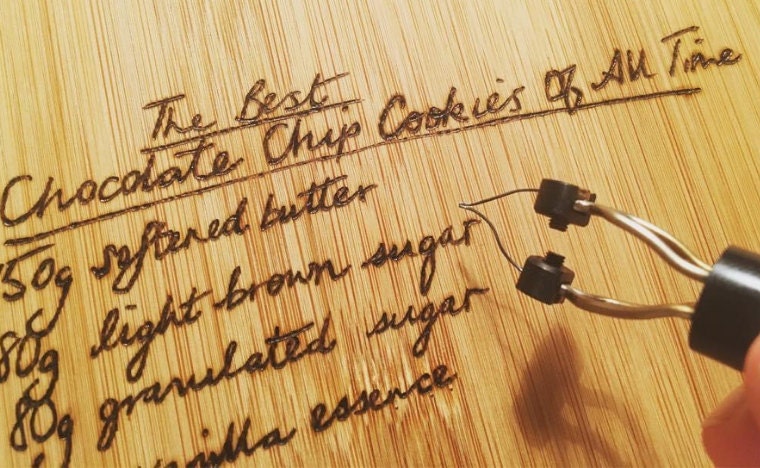 The Best
Chocolate Chip Cookies Of All Time
50g softened butter
80g light brown sugar
80g granulated sugar
vanilla essence